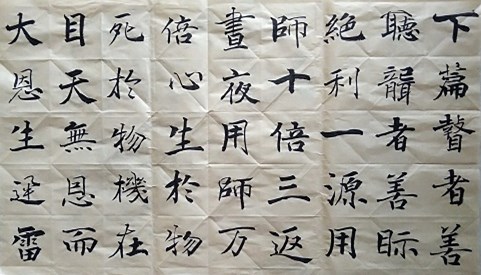 下篇瞽者善
聽聾者善眎
絕利一源用
師十倍三返
晝夜用師万
倍心生於物
死於物機在
目天無恩而
大恩生迅雷